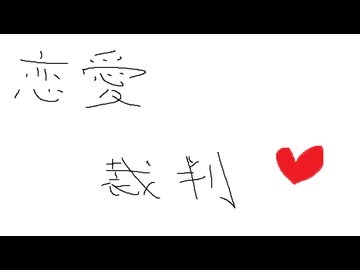 恋愛
裁判